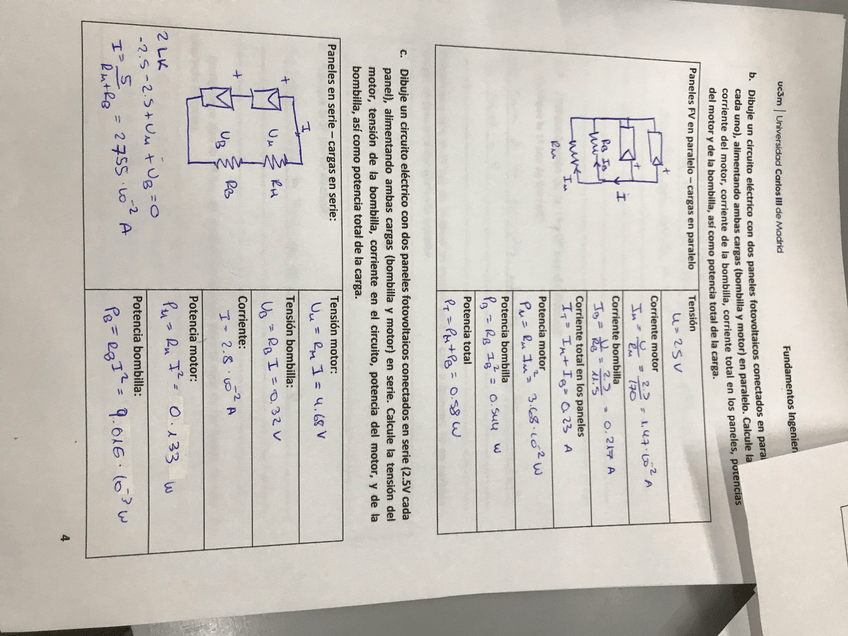 uc3m | Universidad Carlos III de Madrid
Fundamentos Ingenier
b. Dibuje un circuito eléctrico con dos paneles fotovoltaicos conectados en para
cada uno), alimentando ambas cargas (bombilla y motor) en paralelo. Calcule la
corriente del motor, corriente de la bombilla, corriente total en los paneles, potencias
del motor y de la bombilla, así como potencia total de la carga.
Paneles FV en paralelo – cargas en paralelo
+
+
I
RB IB
IM
RM
Tensión
U = 2.5 V
Corriente motor
IM = U/RM = 2.5/170 = 1.47·10⁻² A
Corriente bombilla
IB = U/RB = 2.5/11.5 = 0.217 A
Corriente total en los paneles
IT = IM + IB = 0.23 A
Potencia motor
PM = RM IM² = 3.68·10⁻² W
Potencia bombilla
PB = RB IB² = 0.544 W
Potencia total
PT = PM + PB = 0.58 W
c. Dibuje un circuito eléctrico con dos paneles fotovoltaicos conectados en serie (2.5V cada
panel), alimentando ambas cargas (bombilla y motor) en serie. Calcule la tensión del
motor, tensión de la bombilla, corriente en el circuito, potencia del motor, y de la
bombilla, así como potencia total de la carga.
Paneles en serie – cargas en serie:
I
+
UM
RM
+
UB
RB
2 LK
-2.5 - 2.5 + UM + UB = 0
I = 5/RM+RB = 2.755·10⁻² A
Tensión motor:
UM = RM I = 4.68 V
Tensión bombilla:
UB = RB I = 0.32 V
Corriente:
I = 2.8·10⁻² A
Potencia motor:
PM = RM I² = 0.133 W
Potencia bombilla:
PB = RB I² = 9.016·10⁻³ W
4